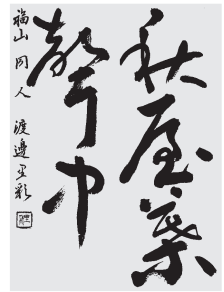 秋屋葉
聲中
福山 同人 渡邊里彩